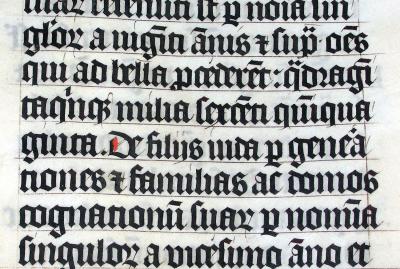 suar recensiti st̄ p noīa sin
gloꝝ a viginti ānis ⁊ sup̄ · oēs
qui ad bella ꝓcederēt : q̄dragī
taqinqꝫ milia sexcēti qīnqua
ginta . De filijs iuda p̄ geneā
tiones ⁊ familias ac domos
cognationū suaꝝ p nomīa
singuloꝝ a vicesimo āno et